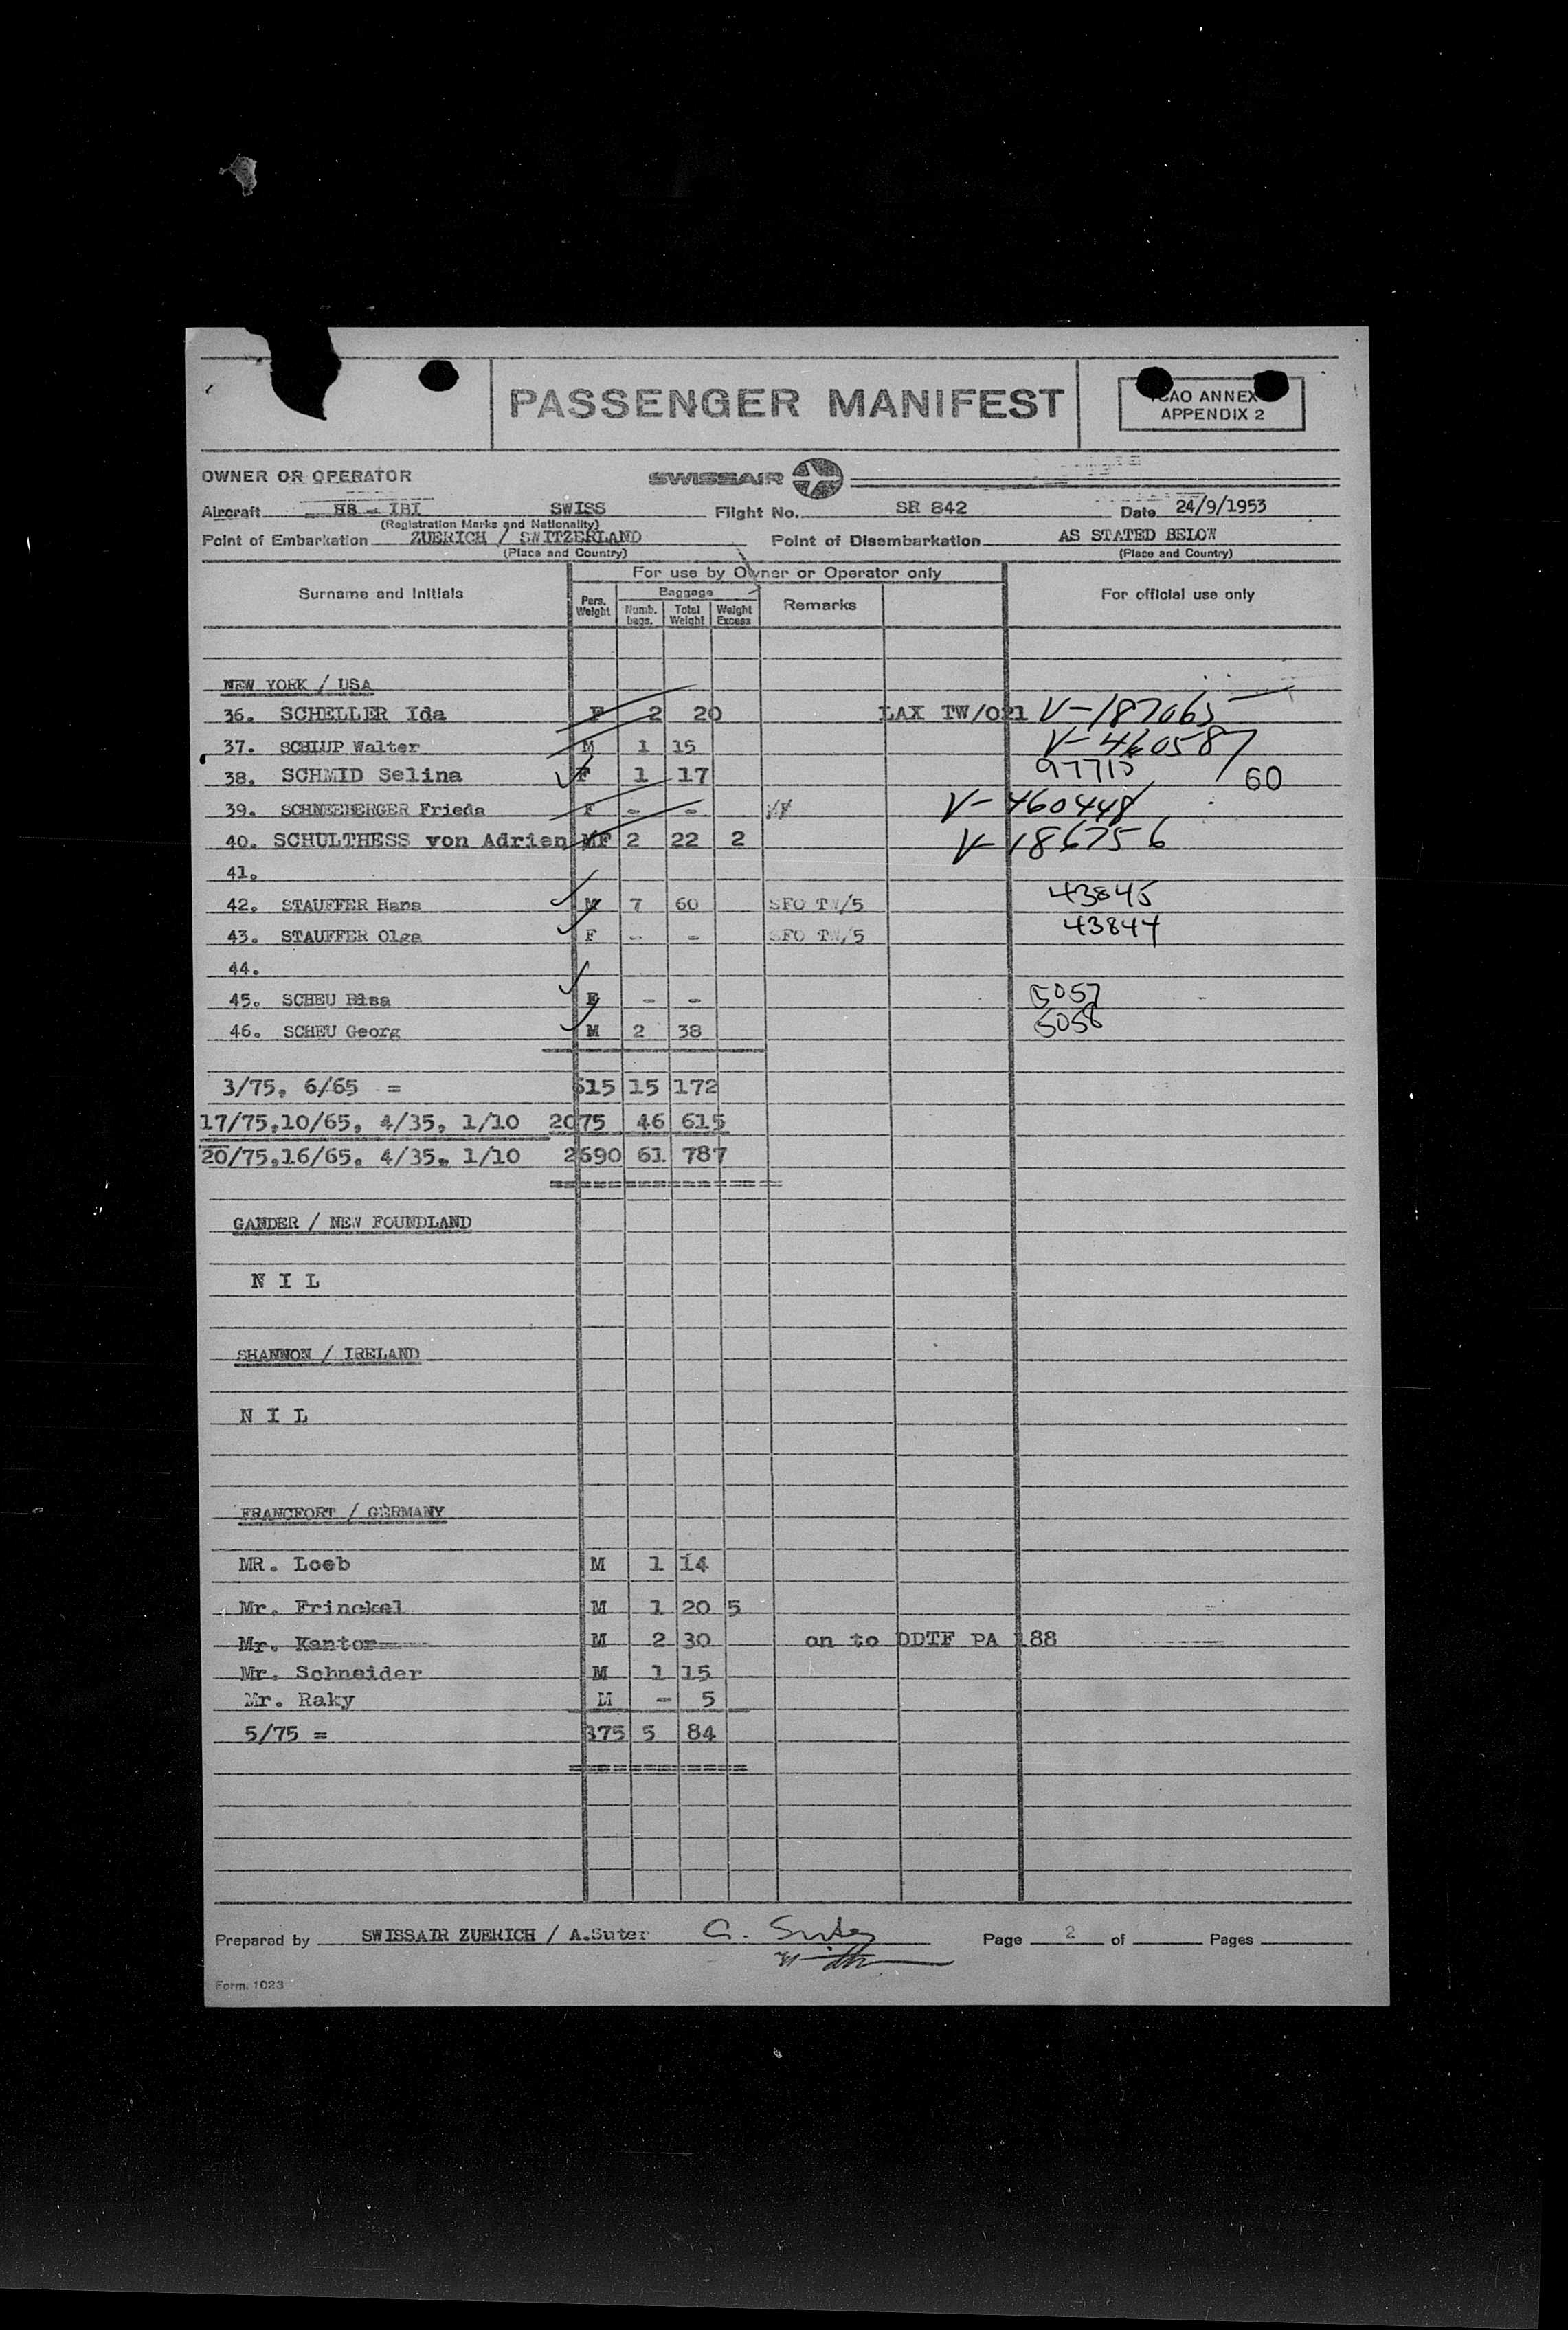 PASSENGER MANIFEST
ICAO ANNEX
APPENDIX 2
OWNER OR OPERATOR SWISSAIR
Aircraft HB - IBI SWISS Flight No. SR 842 Date 24/9/1953
(Registration Marks and Nationality)
Point of Embarkation ZUERICH / SWITZERLAND Point of Disembarkation AS STATED BELOW
(Place and Country) (Place and Country)
For use by Owner or Operator only
Surname and Initials Pers. Weight Baggage Numb. bags. Total Weight Weight Excess Remarks For official use only
NEW YORK / USA
36. SCHELLER Ida F 2 20 LAX TW/021 V-187065
37. SCHLUP Walter M 1 15 V-460587
38. SCHMID Selina F 1 17 97715 / 60
39. SCHNEEBERGER Frieda F - - V-460448
40. SCHULTHESS von Adrien MF 2 22 2 V-186756
41.
42. STAUFFER Hans M 7 60 SFO TW/5 43845
43. STAUFFER Olga F - - SFO TW/5 43844
44.
45. SCHEU Elsa F - - 5057
46. SCHEU Georg M 2 38 5058
3/75, 6/65 = 615 15 172
17/75,10/65, 4/35, 1/10 2075 46 615
20/75,16/65, 4/35, 1/10 2690 61 787
GANDER / NEW FOUNDLAND
N I L
SHANNON / IRELAND
N I L
FRANCFORT / GERMANY
MR. Loeb M 1 14
Mr. Frinckel M 1 20 5
Mr. Kantor M 2 30 on to DDTF PA 188
Mr. Schneider M 1 15
Mr. Raky M - 5
5/75 = 375 5 84
Prepared by SWISSAIR ZUERICH / A.Suter G. Suter Page 2 of Pages
Form. 1023